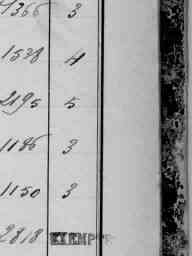 1366 3
1538 4
2195 5
1186 3
1150 3
2818